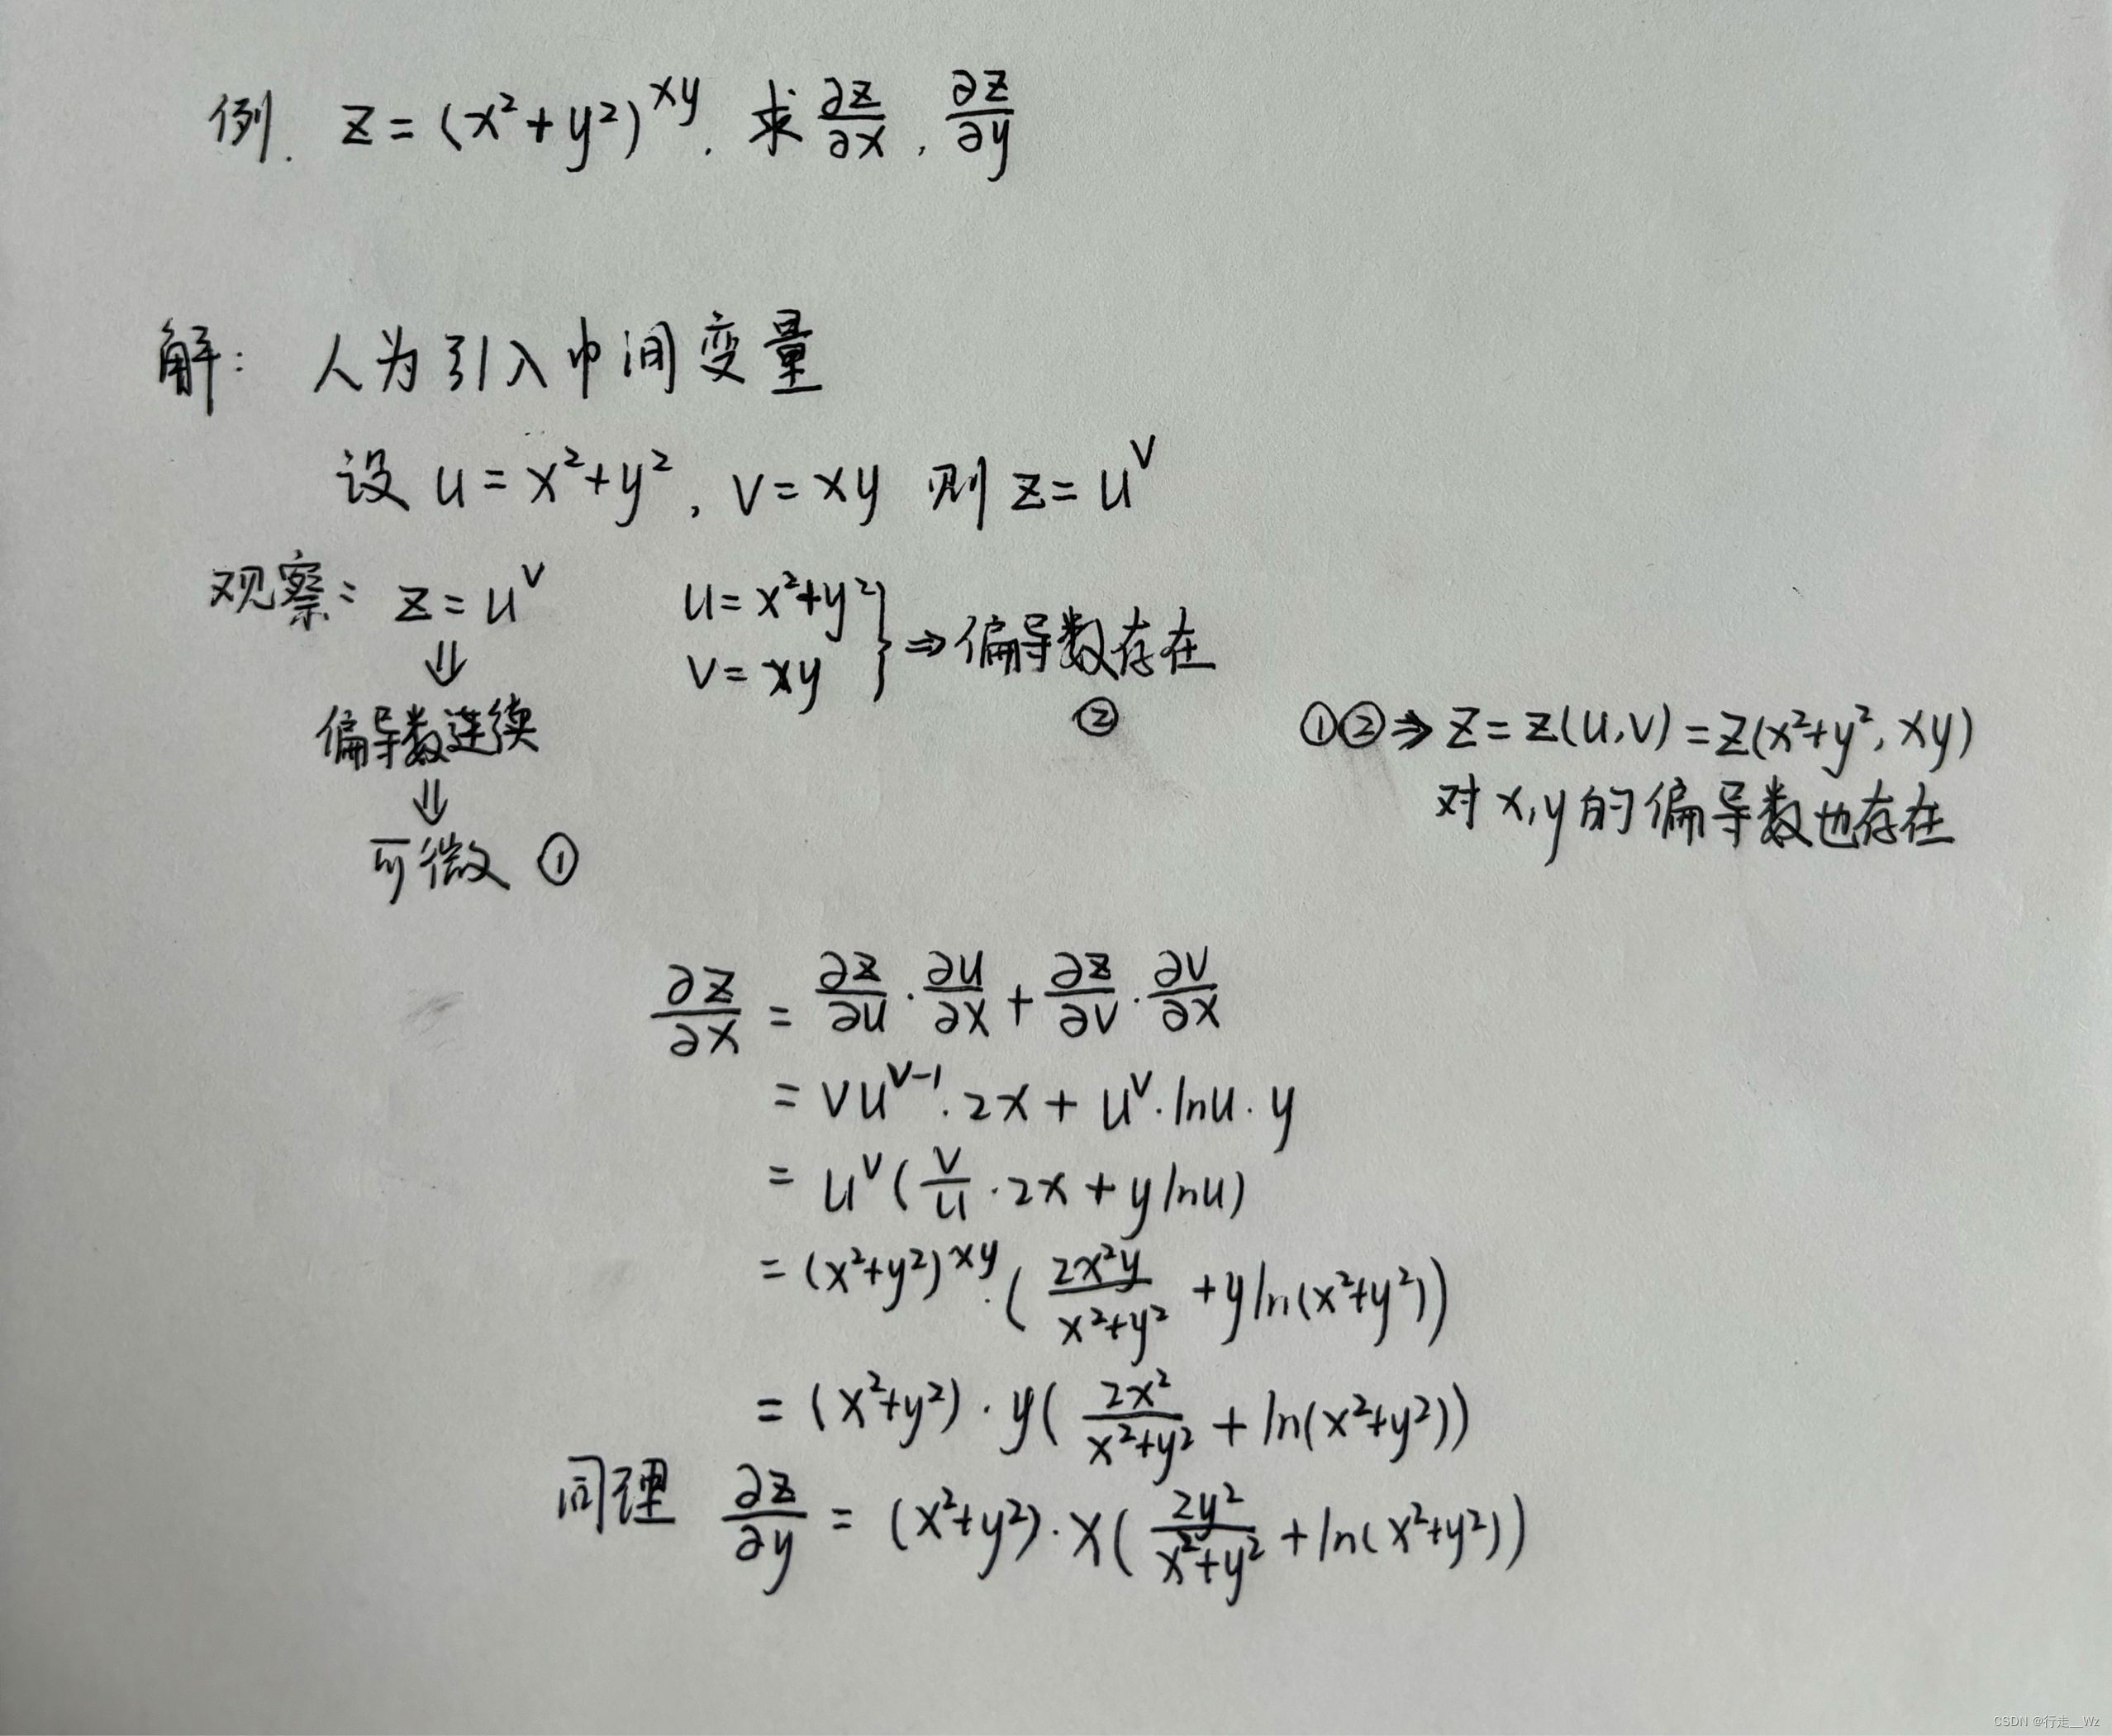 例. z=(x²+y²)^{xy}. 求 ∂z/∂x, ∂z/∂y
解: 人为引入中间变量
设 u=x²+y², v=xy 则 z=u^v
观察: z=u^v
⇓
偏导数连续
⇓
可微 ①
u=x²+y²
v=xy } ⇒ 偏导数存在
②
①② ⇒ z=z(u,v)=z(x²+y², xy)
对x,y的偏导数也存在
∂z/∂x = ∂z/∂u · ∂u/∂x + ∂z/∂v · ∂v/∂x
= vu^{v-1}·2x + u^v·lnu·y
= u^v(v/u·2x + ylnu)
= (x²+y²)^{xy}·(2x²y/(x²+y²) + yln(x²+y²))
= (x²+y²)·y(2x²/(x²+y²) + ln(x²+y²))
同理 ∂z/∂y = (x²+y²)·x(2y²/(x²+y²) + ln(x²+y²))
CSDN @行走__Wz